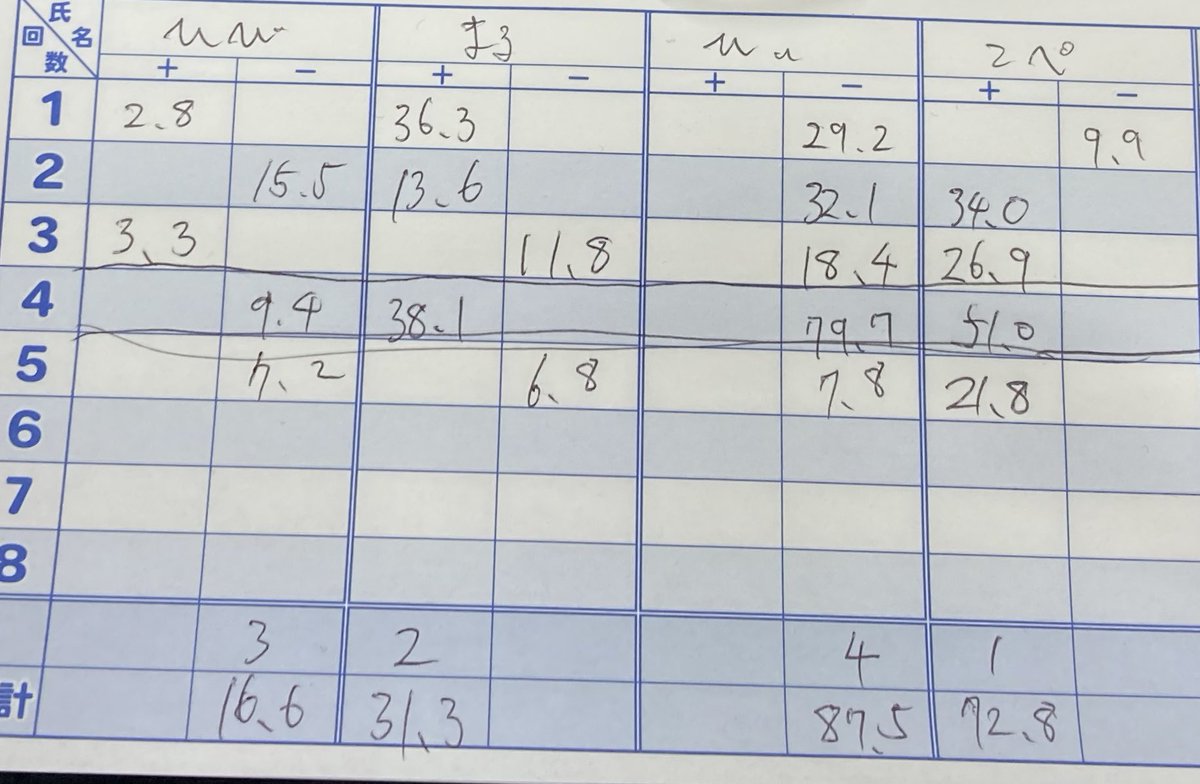 氏名 回数 まろ こぺ
+ − + − + − + −
1 2.8 36.3 29.2 9.9
2 15.5 13.6 32.1 34.0
3 3.3 11.8 18.4 26.9
4 9.4 38.1 79.7 51.0
5 7.2 6.8 7.8 21.8
6
7
8
3 2 4 1
計 16.6 31.3 87.5 72.8